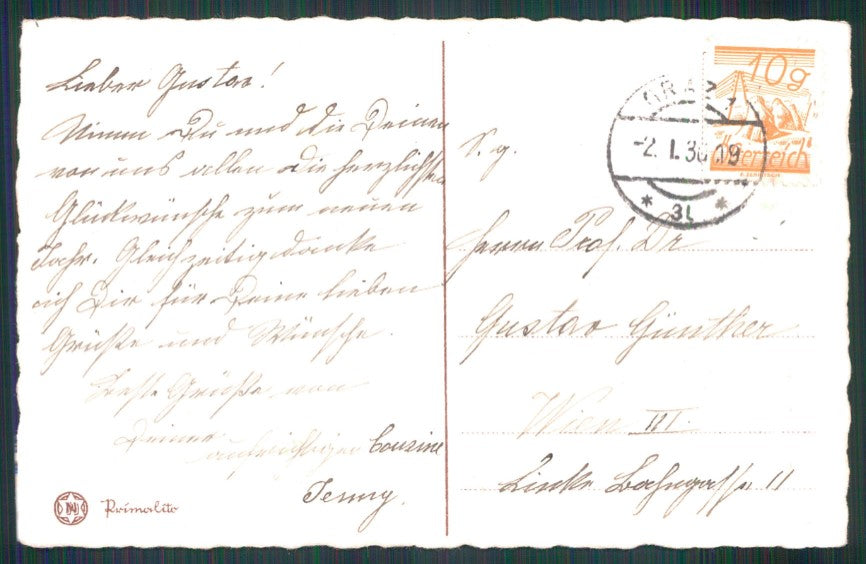 Lieber Gustav!
Nimm Du und die Deinen
von uns allen die herzlichsten
Glückwünsche zum neuen
Jahr. Gleichzeitig danke
ich Dir für Deine lieben
Grüße und Wünsche.
Beste Grüße von
Deiner
aufrichtigen Cousine
Jenny.
Primalito
10g
Österreich
GRAZ 1
-2. I. 36 19
* 3L *
S. g.
Herrn Prof. Dr
Gustav Günther
Wien III.
Linke Bahngasse 11